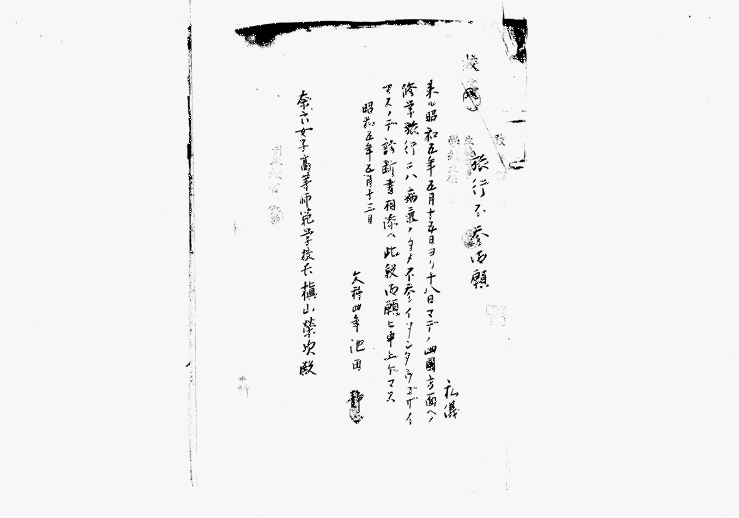 旅行不参御願
私儀
来ル昭和五年五月十五日ヨリ十八日マデノ四國方面ヘノ
修学旅行ニハ病氣ノタメ不参イタシタウゴザイ
マスノデ診断書相添ヘ此段御願ヒ申上ゲマス
昭和五年五月十三日
文科四年 池田 静
奈良女子高等師範学校長槇山榮次殿